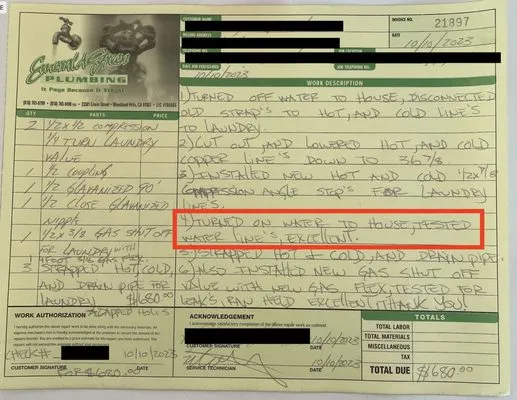 Emerald Green
PLUMBING
It Pays Because It Stays!
CUSTOMER NAME
BILLING ADDRESS
TELEPHONE NO.
JOB LOCATION
JOB TELEPHONE NO.
INVOICE NO.
21897
DATE
10/10/2023
10/10/2023
WORK DESCRIPTION
QTY
PARTS
PRICE
2 1/2 x 1/2 COMPRESSION
1/4 TURN LAUNDRY
VALVE
1 1/2 COUPLING
1 1/2 GLAVANIZED 90°
1 1/2 CLOSE GLAVANIZED
NIPPLE
1 1/2 x 3/8 GAS SHUT OFF
FOR LAUNDRY WITH
4 FOOT 3/8 GAS FLEX.
3 STRAPPED HOT, COLD,
AND DRAIN PIPE FOR
LAUNDRY $1680.00
1) TURNED OFF WATER TO HOUSE, DISCONNECTED
OLD STRAP'S TO HOT, AND COLD LINE'S
TO LAUNDRY.
2) CUT OUT, AND LOWERED HOT, AND COLD
COPPER LINE'S DOWN TO 36 7/8
3) INSTALLED NEW HOT AND COLD
COMPRESSION ANGLE STOP'S FOR LAUNDRY
LINES.
4) TURNED ON WATER TO HOUSE, TESTED
WATER LINE'S, EXCELLENT.
5) STRAPPED HOT & COLD, AND DRAIN PIPE.
6) ALSO INSTALLED NEW GAS SHUT OFF
VALVE WITH NEW GAS FLEX, TESTED FOR
LEAKS, HELD EXCELLENT THANK YOU!
WORK AUTHORIZATION
CHECK#
10/10/2023
CUSTOMER SIGNATURE
DATE
FOR $1680.00
ACKNOWLEDGEMENT
I acknowledge satisfactory completion of the above repair work as outlined.
10/10/2023
CUSTOMER SIGNATURE
DATE
10/10/2023
SERVICE TECHNICIAN
DATE
TOTALS
TOTAL LABOR
TOTAL MATERIALS
MISCELLANEOUS
TAX
TOTAL DUE $1680.00